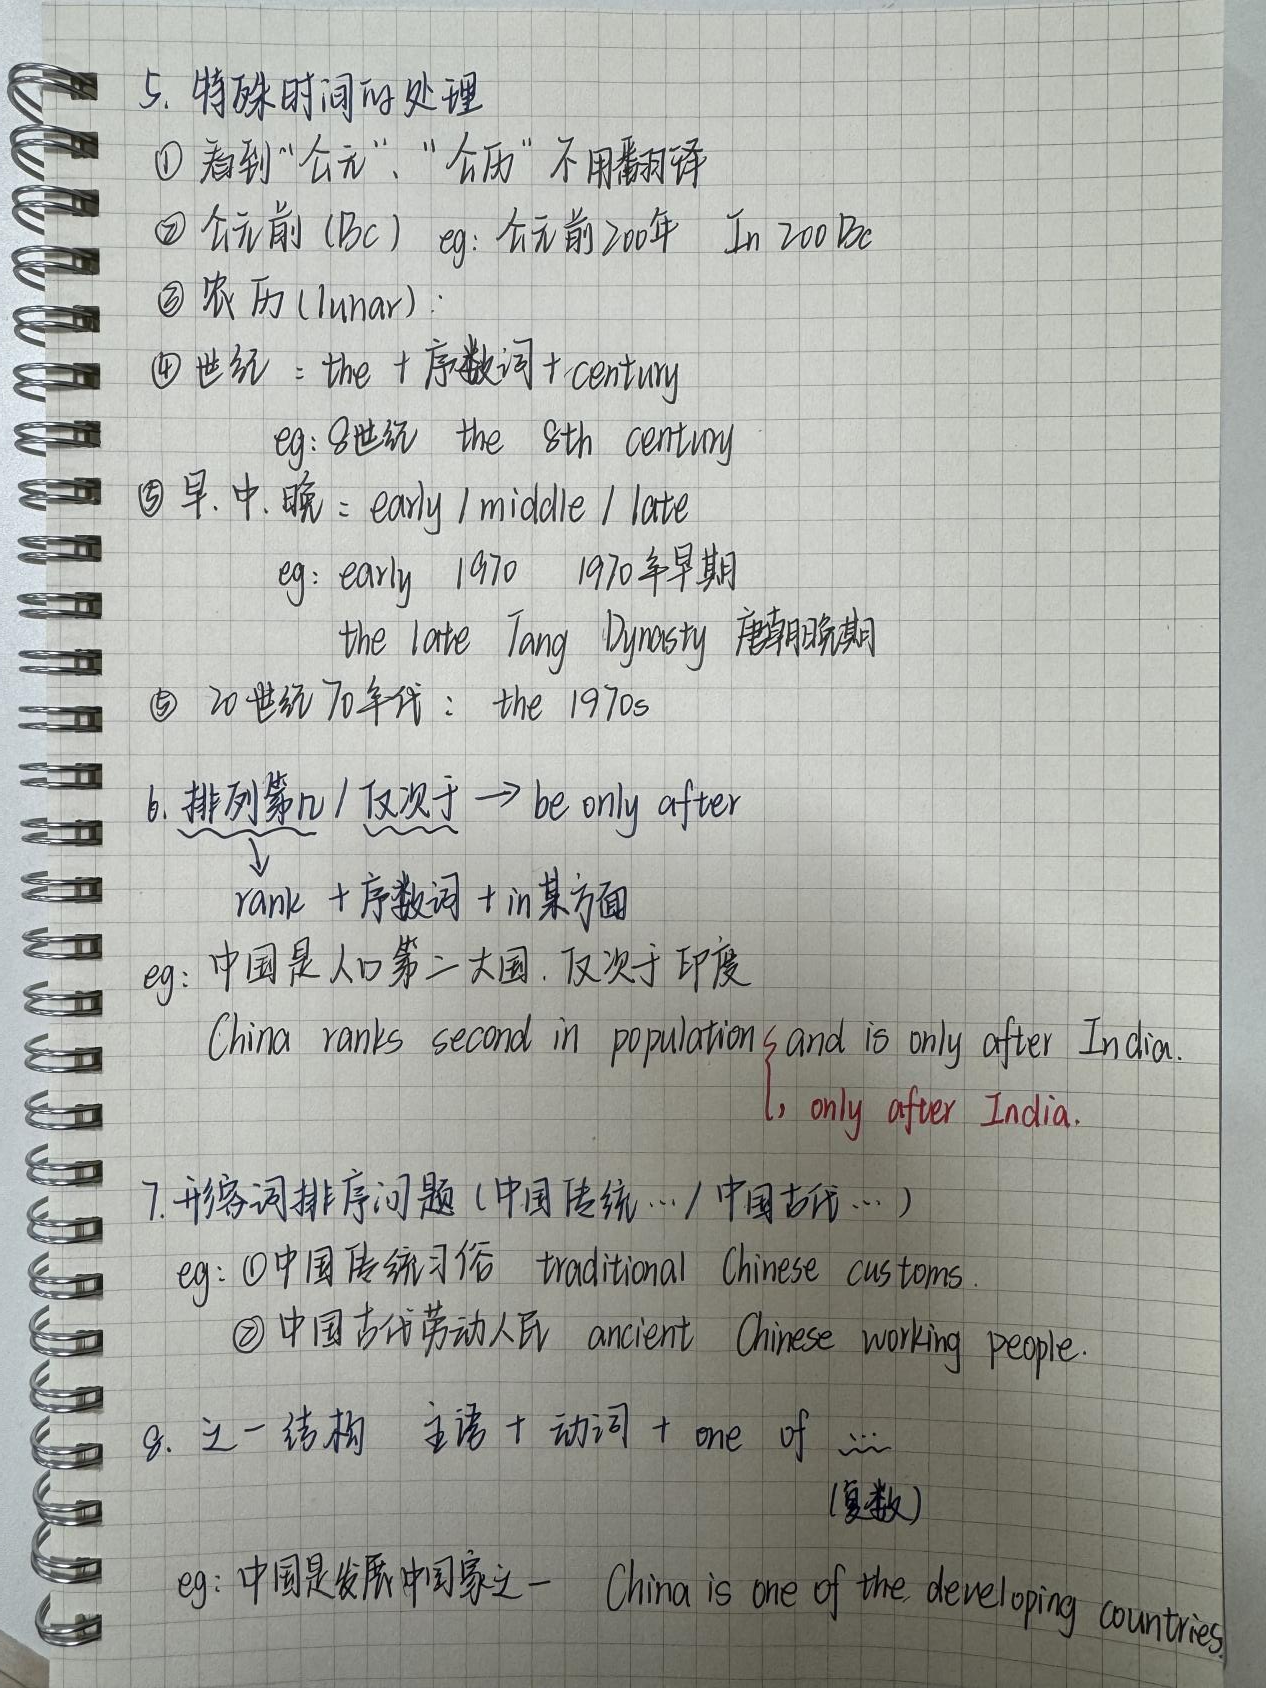 5. 特殊时间的处理
① 看到“公元”、“公历”不用翻译
② 公元前(BC) eg: 公元前200年 In 200 BC
③ 农历(lunar):
④ 世纪: the + 序数词 + century
eg: 8世纪 the 8th century
⑤ 早.中.晚: early / middle / late
eg: early 1970 1970年早期
the late Tang Dynasty 唐朝晚期
⑤ 20世纪70年代: the 1970s
6. 排列第几/仅次于 → be only after
↓
rank + 序数词 + in某方面
eg: 中国是人口第二大国.仅次于印度
China ranks second in population and is only after India.
, only after India.
7. 形容词排序问题(中国传统…/中国古代…)
eg: ①中国传统习俗 traditional Chinese customs.
② 中国古代劳动人民 ancient Chinese working people.
8. 之一结构 主语 + 动词 + one of ...
(复数)
eg: 中国是发展中国家之一 China is one of the developing countries.